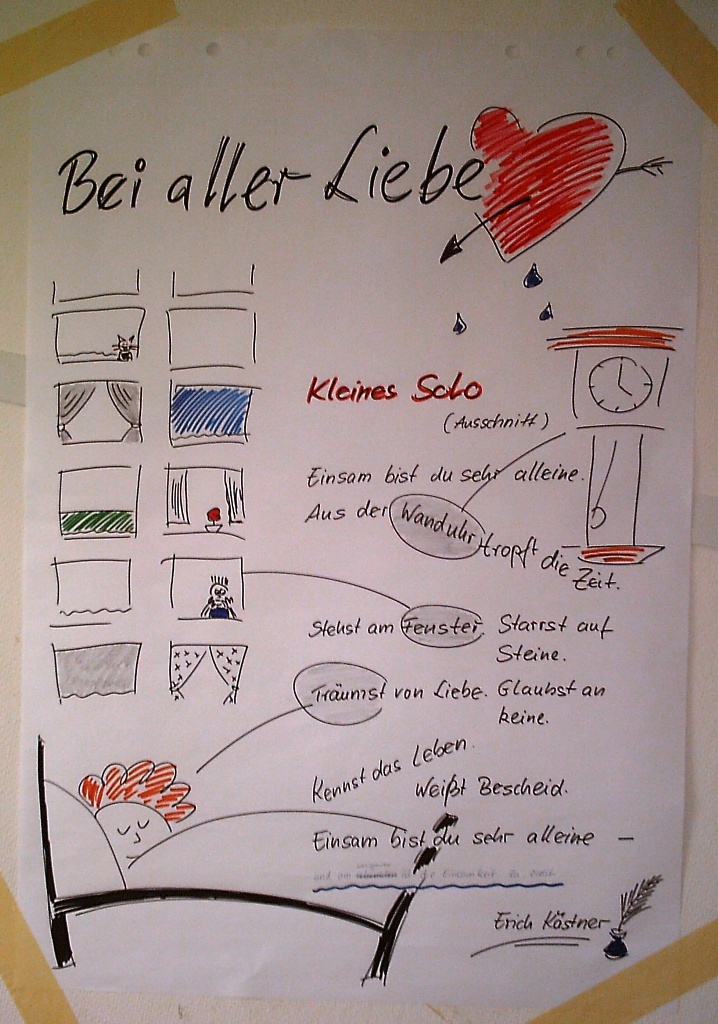 Bei aller Liebe
Kleines Solo
(Ausschnitt)
Einsam bist du sehr alleine.
Aus der Wanduhr tropft die
Zeit.
Stehst am Fenster. Starrst auf
Steine.
Träumst von Liebe. Glaubst an
keine.
Kennst das Leben.
Weißt Bescheid.
Einsam bist du sehr alleine –
und am ist die Einsamkeit zu zweit
Erich Kästner